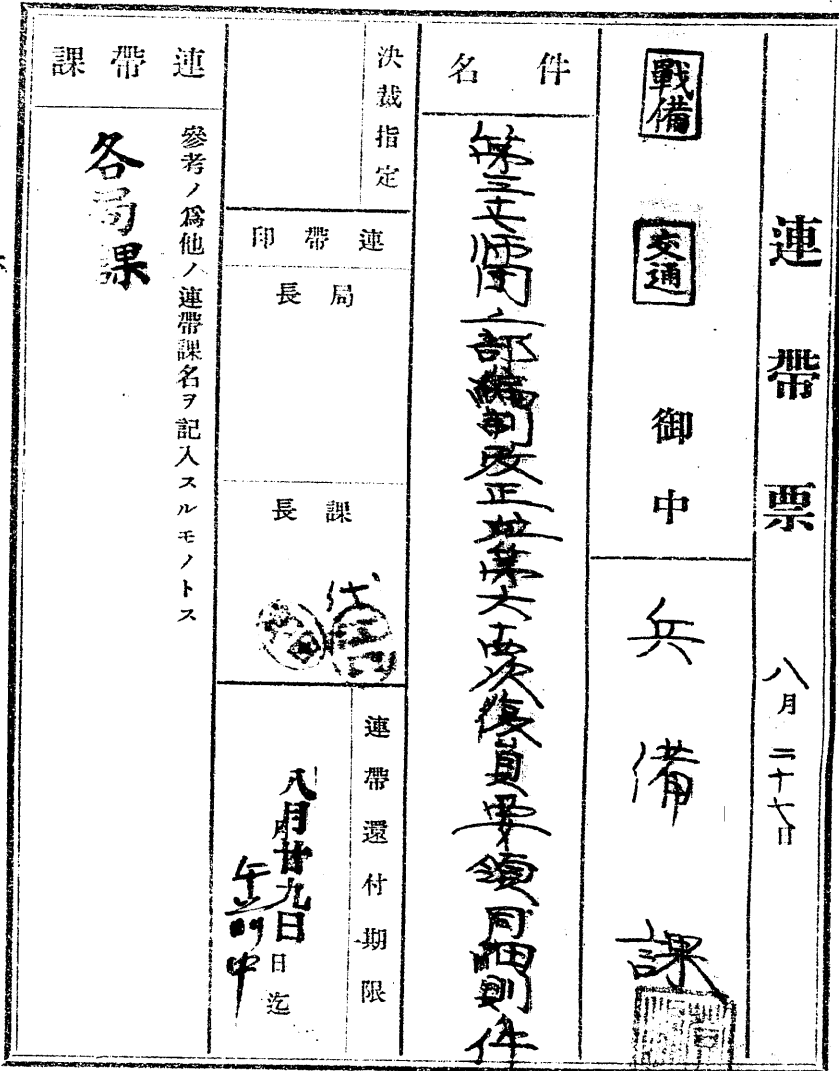 連帶票
八月二十七日
戰備
交通
御中
兵備課
件名
第三七師団上部編制改正並第六要次復員要領同細則件
決裁指定
連帶印
局長
課長
代
連帶還付期限
八月廿九日
午前中
日迄
連帶課
參考ノ爲他ノ連帶課名ヲ記入スルモノトス
各局課